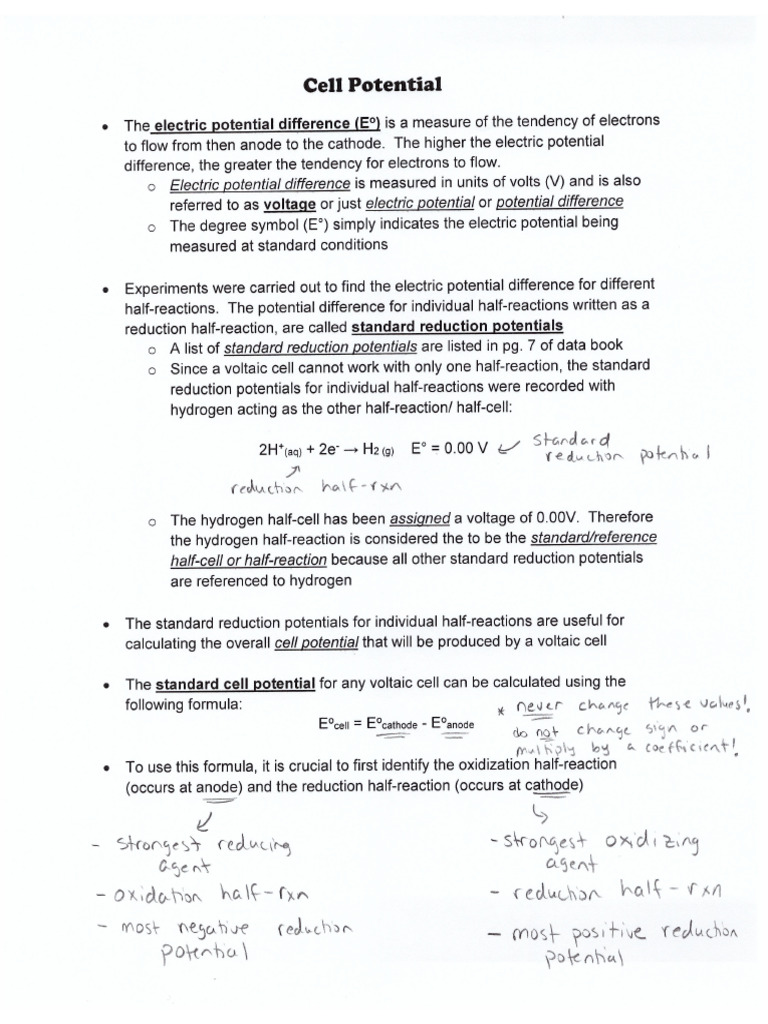 Cell Potential
• The electric potential difference (E°) is a measure of the tendency of electrons
to flow from then anode to the cathode. The higher the electric potential
difference, the greater the tendency for electrons to flow.
o Electric potential difference is measured in units of volts (V) and is also
referred to as voltage or just electric potential or potential difference
o The degree symbol (E°) simply indicates the electric potential being
measured at standard conditions
• Experiments were carried out to find the electric potential difference for different
half-reactions. The potential difference for individual half-reactions written as a
reduction half-reaction, are called standard reduction potentials
o A list of standard reduction potentials are listed in pg. 7 of data book
o Since a voltaic cell cannot work with only one half-reaction, the standard
reduction potentials for individual half-reactions were recorded with
hydrogen acting as the other half-reaction/ half-cell:
2H⁺(aq) + 2e⁻ → H₂ (g) E° = 0.00 V ↙ standard
reduction potential
↗
reduction half-rxn
o The hydrogen half-cell has been assigned a voltage of 0.00V. Therefore
the hydrogen half-reaction is considered the to be the standard/reference
half-cell or half-reaction because all other standard reduction potentials
are referenced to hydrogen
• The standard reduction potentials for individual half-reactions are useful for
calculating the overall cell potential that will be produced by a voltaic cell
• The standard cell potential for any voltaic cell can be calculated using the
following formula:
E°cell = E°cathode - E°anode
* never change these values!
do not change sign or
multiply by a coefficient!
• To use this formula, it is crucial to first identify the oxidization half-reaction
(occurs at anode) and the reduction half-reaction (occurs at cathode)
- strongest reducing
agent
- oxidation half-rxn
- most negative reduction
potential
- strongest oxidizing
agent
- reduction half-rxn
- most positive reduction
potential